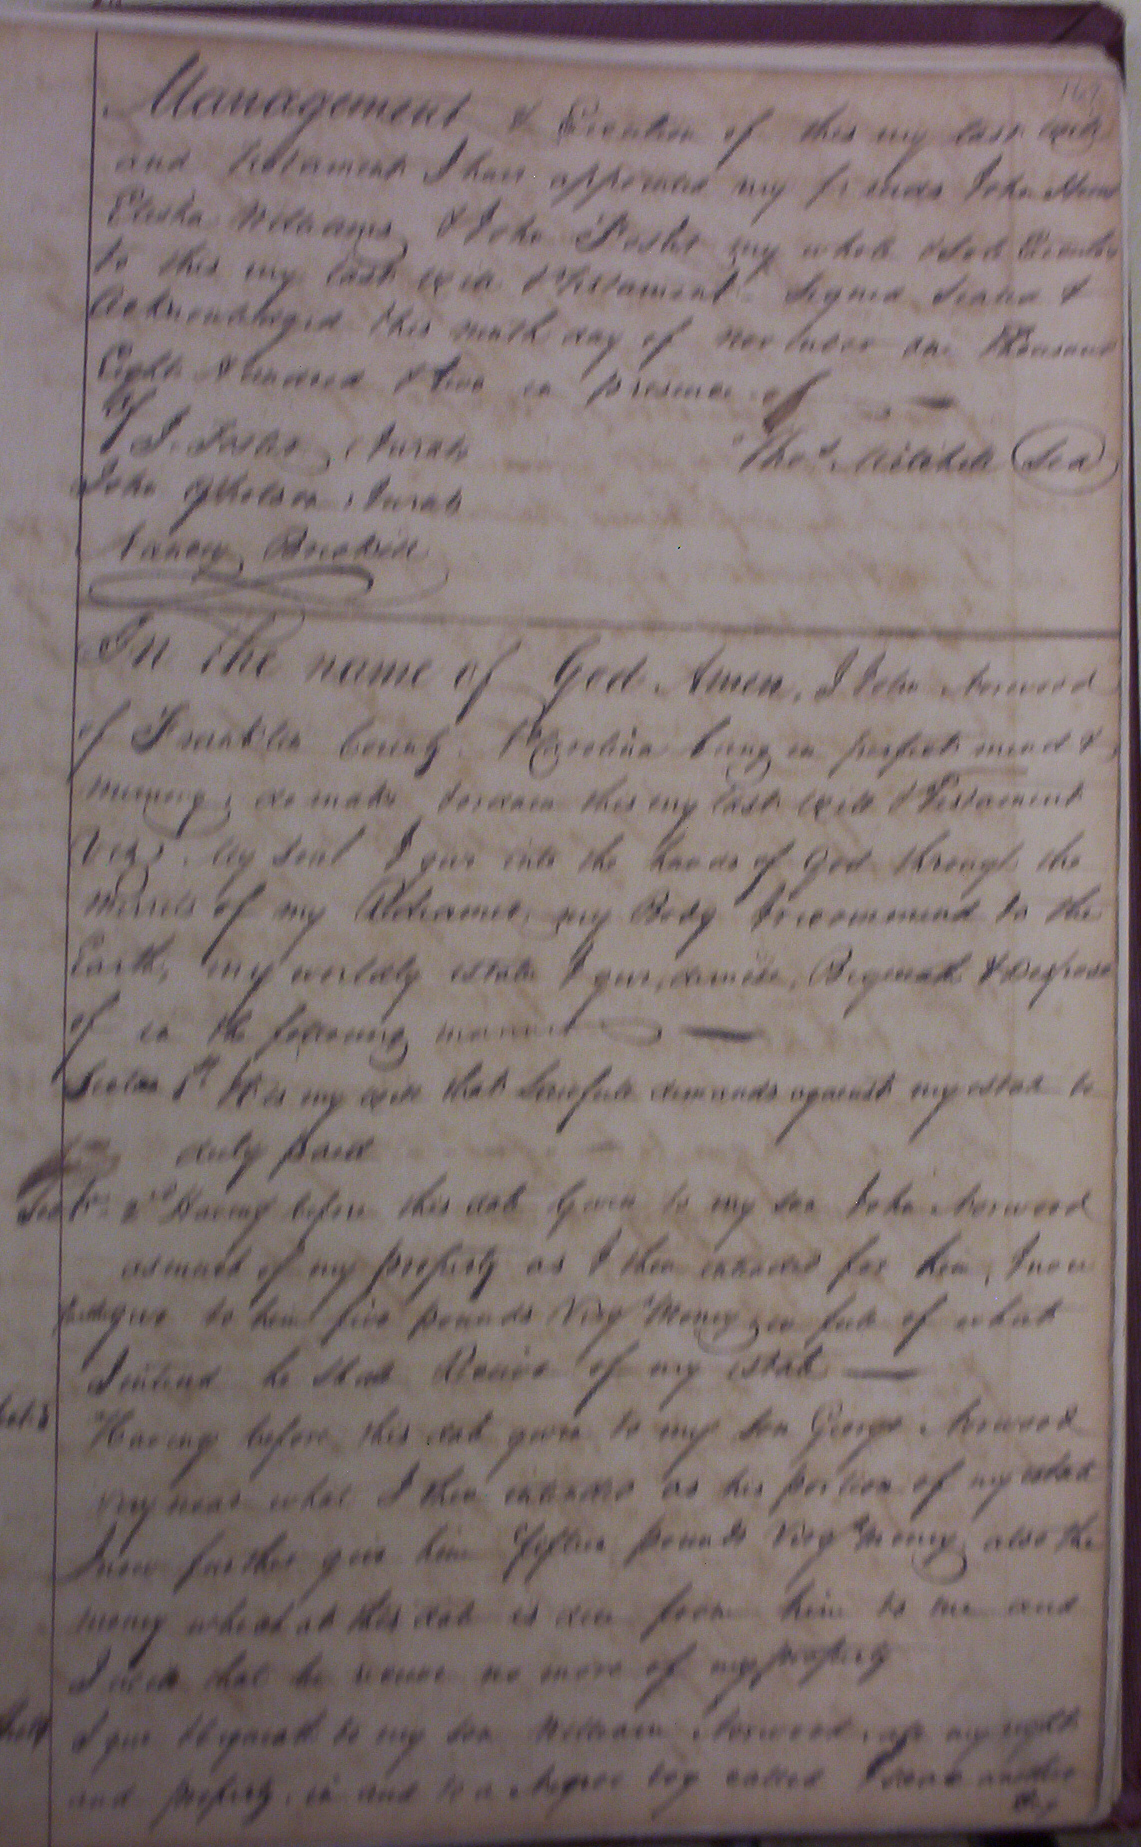 Management & Exention of this my last will
and testament I have appointed my friends John
Elisha Williams & John Foster my whole & Sole
to this my last will & testament Signed Sealed &
Acknowledged this ninth day of November one Thousand
Eight Hundred & two in presence of
J. Foster Jurat Thos Mitchell Sea
John Jurat
Nancy
In the name of God Amen. I John Norwood
of Franklin County N Carolina being in perfect mind &
memory, do make & ordain this my last will & Testament
Viz) My Soul I give into the hands of God through the
Merrits of my my Body I recommend to the
Earth, my worldly estate I give, demise, Bequeath & Dispose
of in the following manner
1st It is my will that Lawfull demands against my estate be
duly paid
2nd Having before this date Given to my son John Norwood
as much of my property as I then intended for him, I now
give to him five pounds Virga Money in full of what
I intend he shall Receive of my estate
Having before this date given to my Son George Norwood
very near what I then intended as his portion of my estate
I now further give him fifteen pounds Virga Money also the
money which at this date is due from him to me and
I will that he receive no more of my property
I give & bequeath to my son William Norwood all my right
and property in and to a Negroe boy called Isaac another